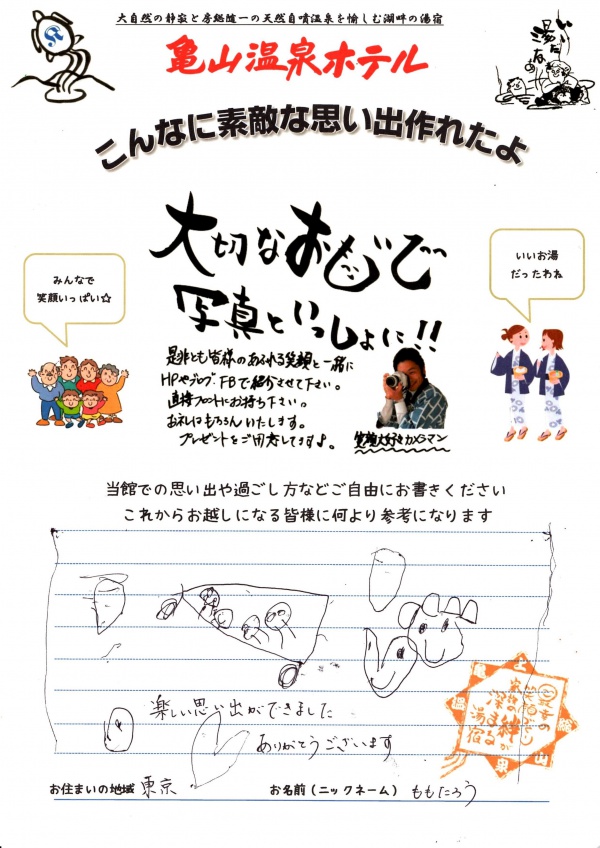 大自然の静寂と房総随一の天然自噴温泉を愉しむ湖畔の湯宿
亀山温泉ホテル
いい湯だなぁ
こんなに素敵な思い出作れたよ
大切なおもいで
写真といっしょに!!
みんなで
笑顔いっぱい☆
いいお湯
だったわね
是非とも皆様のあふれる笑顔と一緒に
HPやブログ FBで紹介させて下さい。
直接フロントにお持ち下さい。
お礼はもちろんいたします。
プレゼントをご用意してます♪。
笑顔大好きカメラマン
当館での思い出や過ごし方などご自由にお書きください
これからお越しになる皆様に何より参考になります
楽しい思い出ができました
ありがとうございます
家族の絆が
深まる
湯宿
亀山温泉
お住まいの地域 東京
お名前(ニックネーム) ももたろう